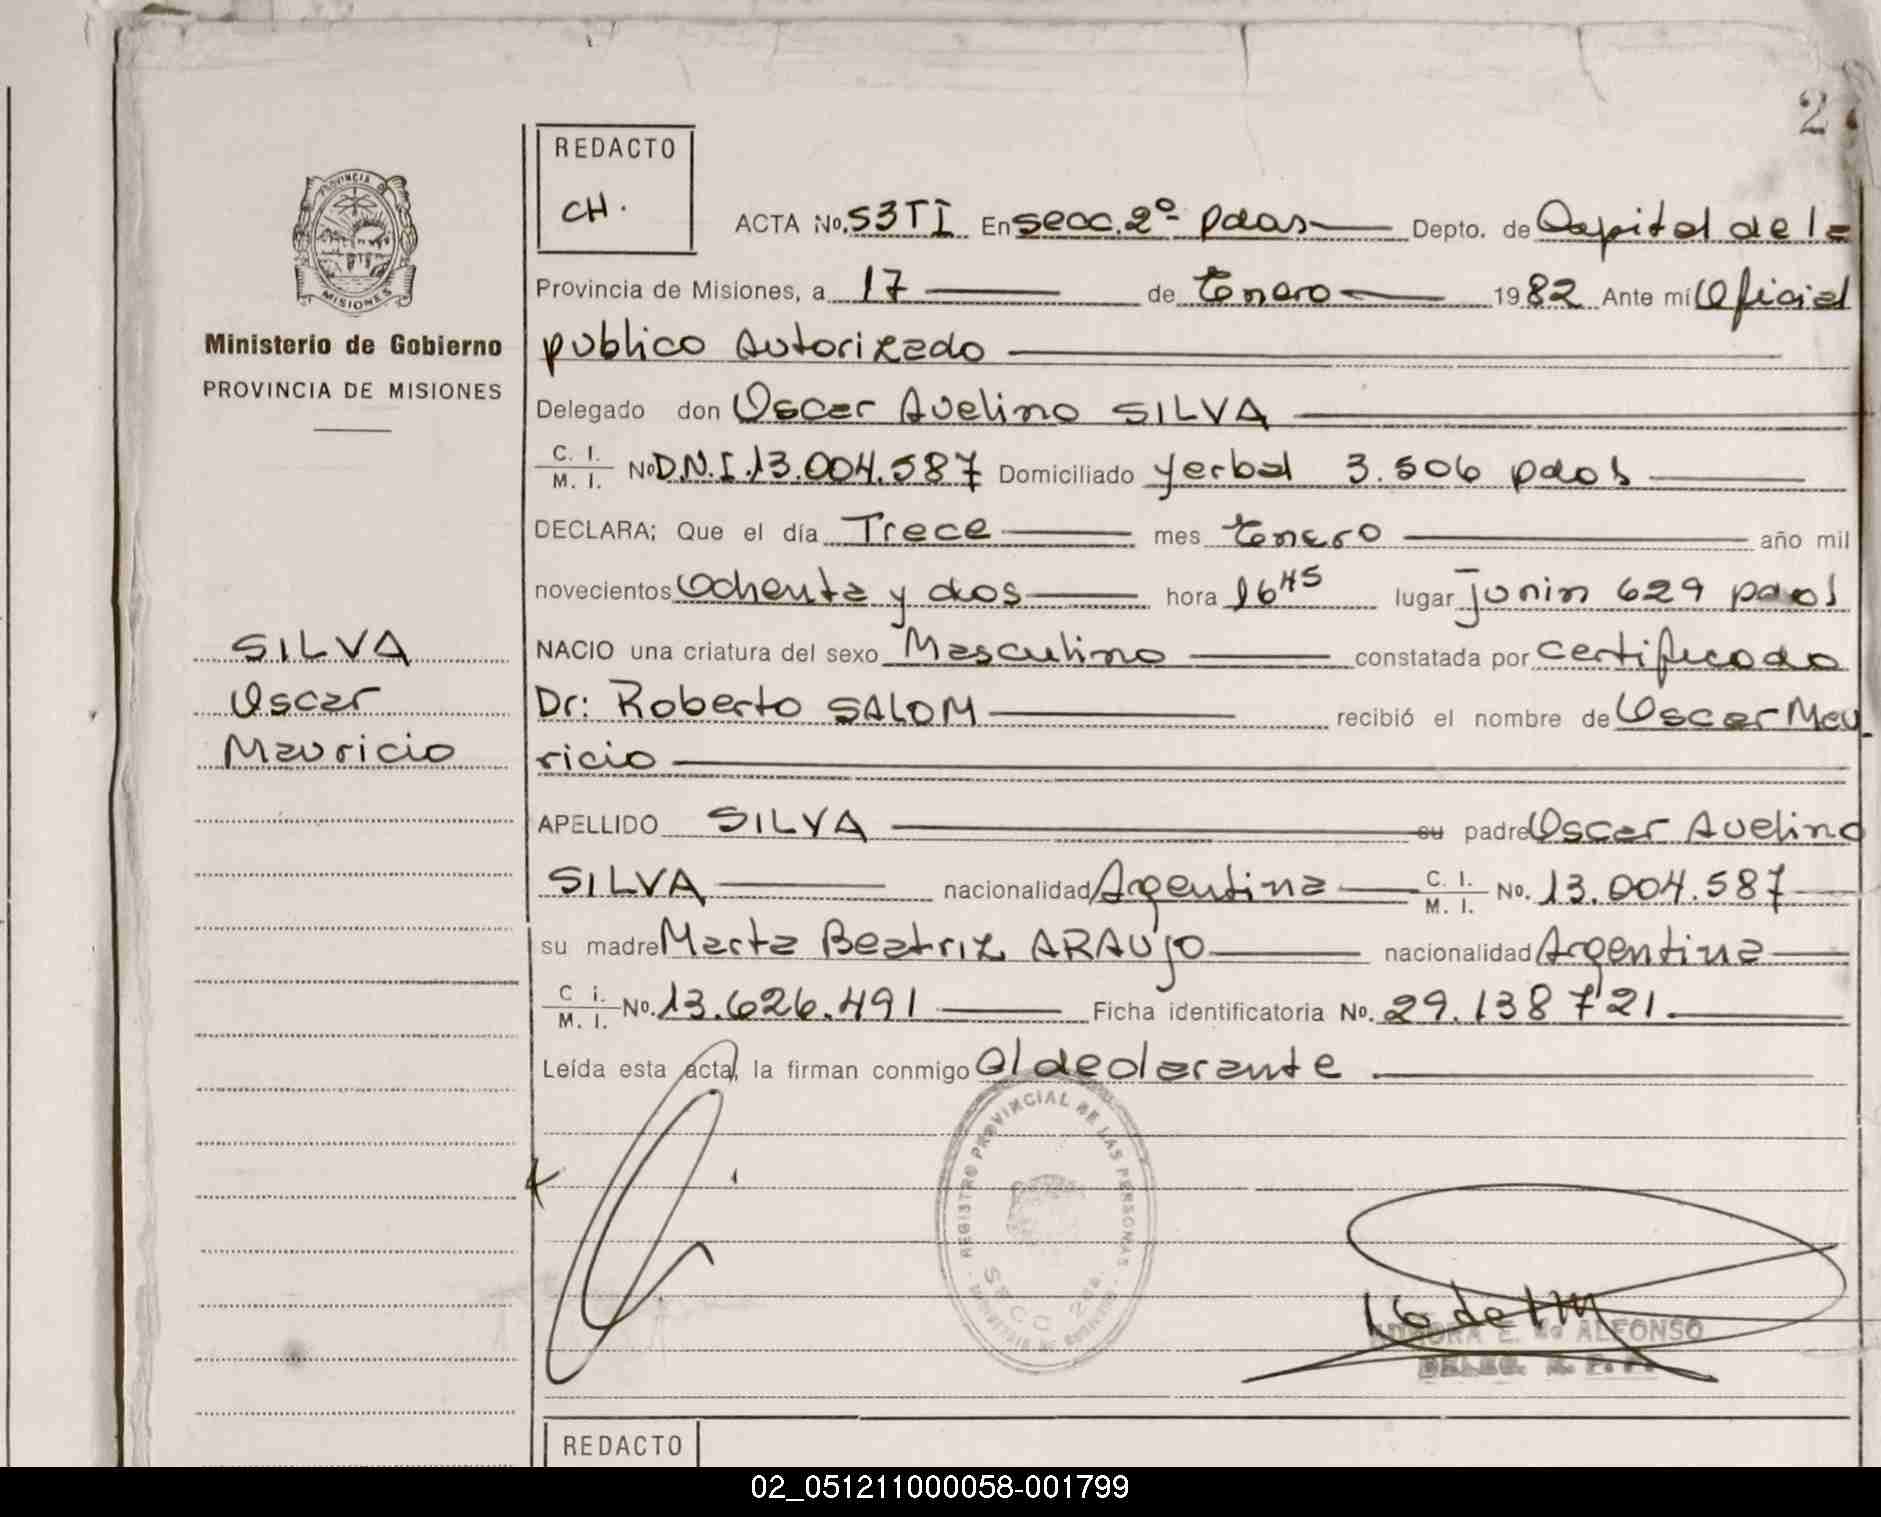 2
REDACTO
CH.
PROVINCIA DE
MISIONES
Ministerio de Gobierno
PROVINCIA DE MISIONES
ACTA No. 53TI En secc. 2º pdas Depto. de Capital de la
Provincia de Misiones, a 17 de Enero 1982 Ante mí Oficial
publico Autorizado
Delegado don Oscar Avelino SILVA
C. I. / M. I. No D.N.I. 13.004.587 Domiciliado Yerbal 3.506 pdas
DECLARA; Que el día Trece mes Enero año mil
novecientos ochenta y dos hora 16 45 lugar junin 629 pdas
NACIO una criatura del sexo Masculino constatada por certificado
Dr: Roberto SALOM recibió el nombre de Oscar Mau
ricio
SILVA
Oscar
Mauricio
APELLIDO SILVA su padre Oscar Avelino
SILVA nacionalidad Argentina C. I. / M. I. No. 13.004.587
su madre Marta Beatriz ARAUJO nacionalidad Argentina
C i. / M. I. No. 13.626.491 Ficha identificatoria No. 29.138721.
Leída esta acta, la firman conmigo el declarante
REGISTRO PROVINCIAL DE LAS PERSONAS
SECC 2da.
E. de ALFONSO
DELEG. R. P. P.
REDACTO
02_051211000058-001799